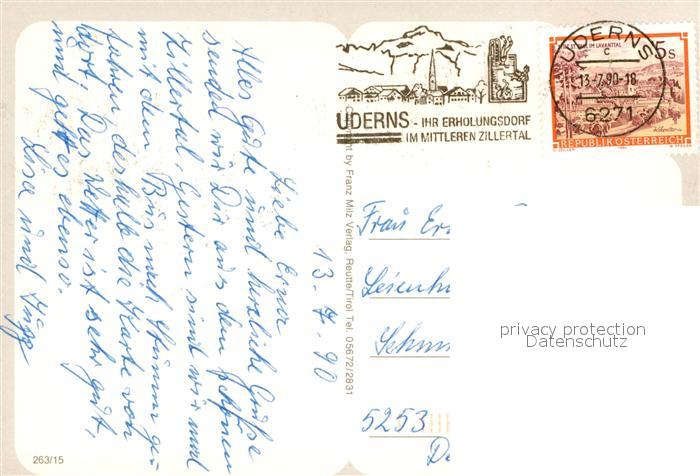 13.7.90
Liebe Erna
Alles Gute und herzliche Grüße
sendet wir Dir aus dem schönen
Zillertal. Gestern sind wir und
mit dem Bus nach ge-
fahren deshalb die Karte von
dort. Das Wetter ist sehr gut,
und gettes ebenso.
Lisa und
263/15
Copyright by Franz Milz Verlag, Reutte/Tirol Tel. 05672/2831
UDERNS - IHR ERHOLUNGSDORF
IM MITTLEREN ZILLERTAL
UDERNS
c
13.-7.90-18
6271
5s
STIFT ST. PAUL IM LAVANTTAL
REPUBLIK ÖSTERREICH
Frau Er
Leienh
Schm
5253
De
privacy protection
Datenschutz